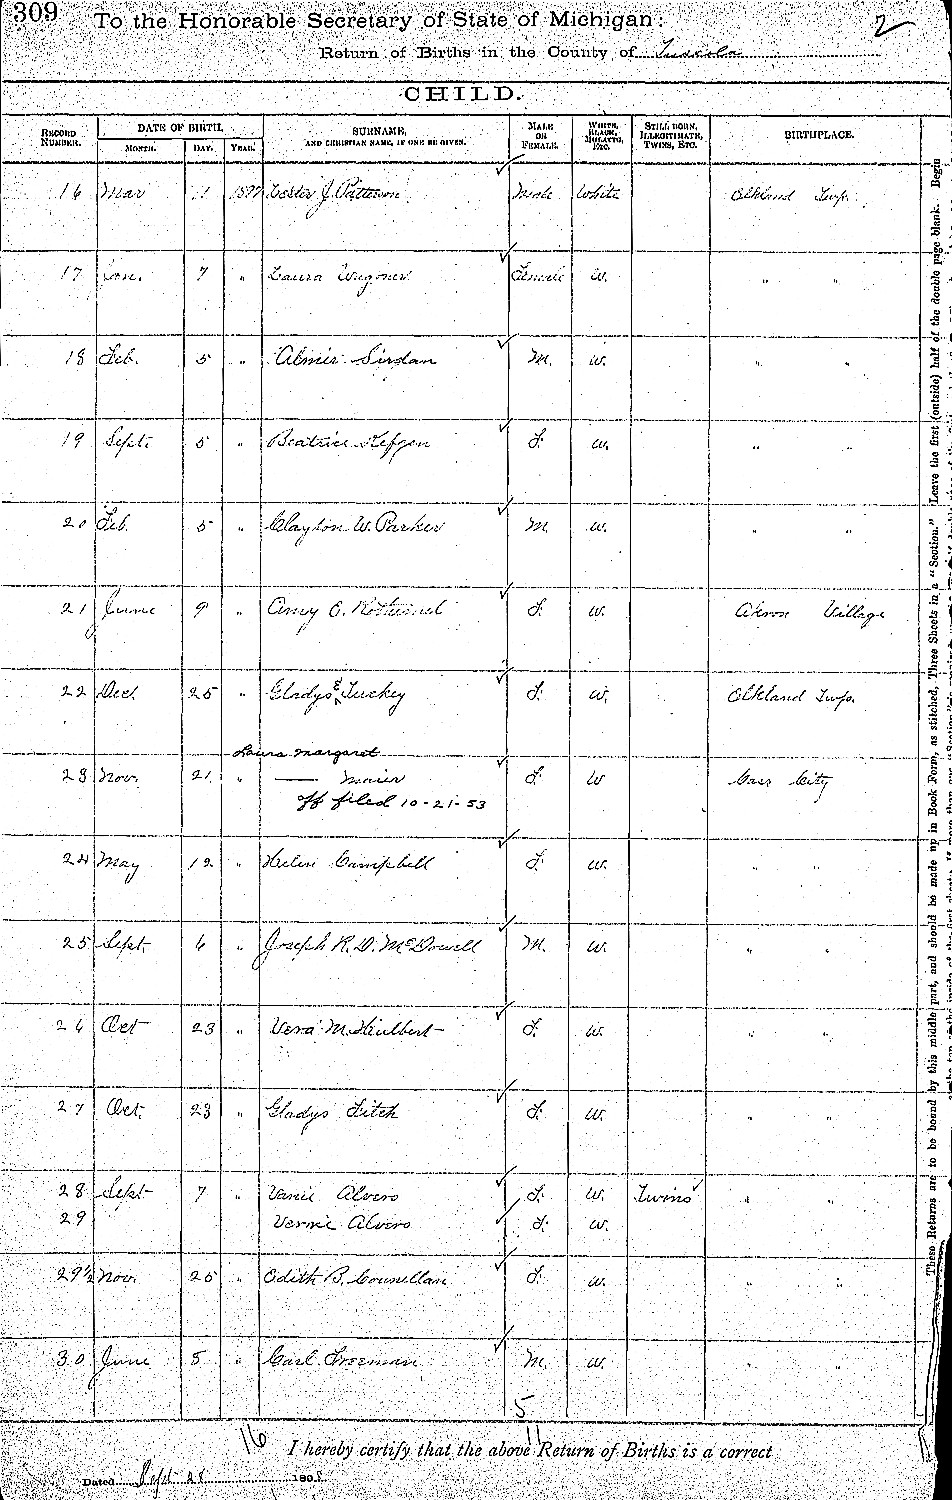 309
To the Honorable Secretary of State of Michigan:
2
Return of Births in the County of Tuscola
CHILD.
RECORD NUMBER. DATE OF BIRTH. MONTH. DAY. YEAR. SURNAME, AND CHRISTIAN NAME, IF ONE BE GIVEN. MALE OR FEMALE. WHITE, BLACK, MULATTO, ETC. STILL BORN, ILLEGITIMATE, TWINS, ETC. BIRTHPLACE.
16 Mar 11 1897 Lester J. Patterson Male White Elkland Twp.
17 Jan. 7 " Laura Wagoner Female W. " "
18 Feb. 5 " Almir M. W. " "
19 Sept. 5 " Beatrice Kefgen F. W. " "
20 Feb. 5 " Clayton W. Parker M. W. " "
21 June 9 " Amy F. W. Akron Village
22 Dec. 25 " Gladys E Tuckey F. W. Elkland Twp.
Laura Margaret
23 Nov. 21 " — Maier F. W Cass City
aff filed 10-21-53
24 May 12 " Helen Campbell F. W. " "
25 Sept. 6 " Joseph R. D. McDowell M. W. " "
26 Oct 23 " Vera M. F. W. " "
27 Oct. 23 " Gladys Fitch F. W. " "
28 Sept 7 " Vanie Alvero F. W. Twins " "
29 Vernie Alvero F. W.
29½ Nov. 25 " Edith B. Counsellan F. W. " "
30 June 5 " Carl Freeman M. W. " "
5
16 11
I hereby certify that the above Return of Births is a correct
Dated Sept 28 1898
These Returns are to be bound by this middle part, and should be made up in Book Form, as stitched, Three Sheets in a "Section." Leave the first (outside) half of the double page blank. Begin